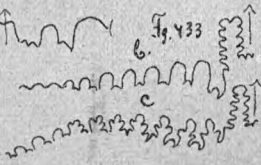 Fg. 433
b.
c